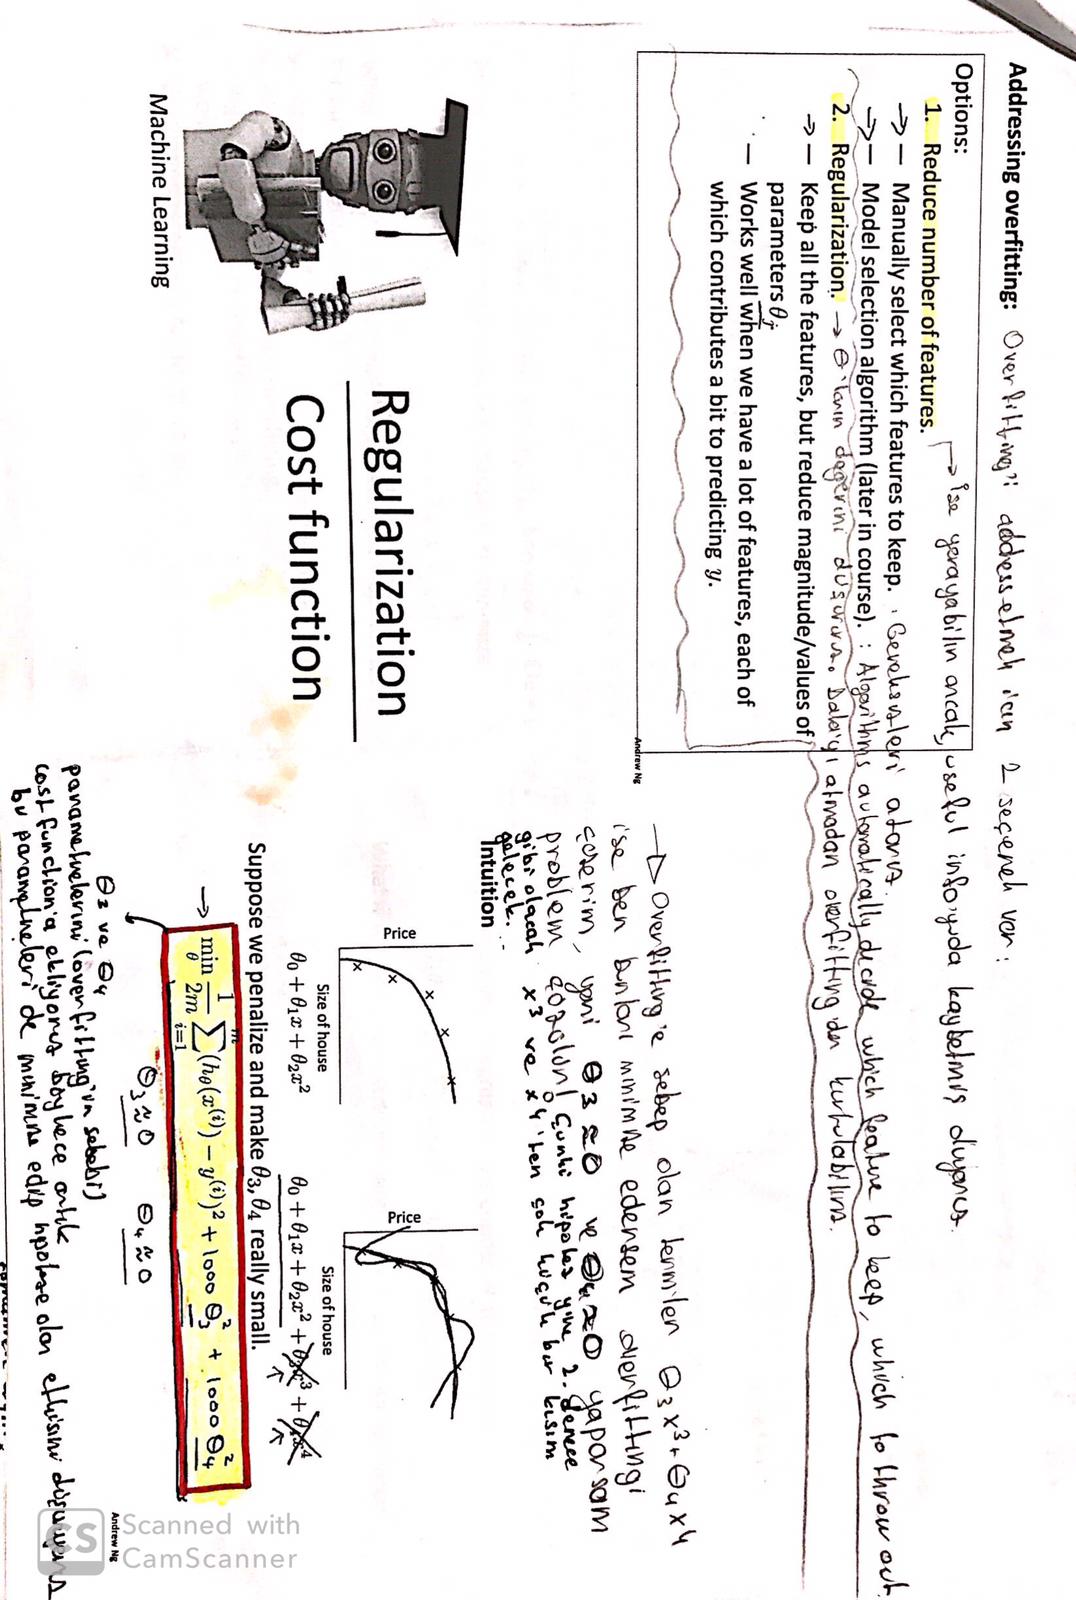 Addressing overfitting: Overfitting'i address etmek için 2 seçenek var:
Options: → İşe yarayabilir ancak, useful info'yu da kaybetmiş oluyoruz.
1. Reduce number of features.
→ — Manually select which features to keep. : Gereksizleri atarız.
→ — Model selection algorithm (later in course). : Algorithms automatically decide which feature to keep, which to throw out.
2. Regularization. → θ'ların değerini düşürürüz. Data'yı atmadan overfitting'den kurtulabiliriz.
→ — Keep all the features, but reduce magnitude/values of
parameters θj
— Works well when we have a lot of features, each of
which contributes a bit to predicting y.
Andrew Ng
→ Overfitting'e sebep olan terimler θ3x³+θ4x⁴
ise ben bunları minimize edersem overfittingi
çözerim, yani θ3≈0 ve θ4≈0 yaparsam
problem çözülür! Çünkü hipotez yine 2. derece
gibi olacak x³ ve x⁴'ten çok küçük bir kısım
gelecek.
Intuition
Price
Size of house
θ0 + θ1x + θ2x²
Price
Size of house
θ0 + θ1x + θ2x² + θ3x³ + θ4x⁴
Suppose we penalize and make θ3, θ4 really small.
→ min θ 1/2m Σ i=1 m (hθ(x⁽ⁱ⁾) − y⁽ⁱ⁾)² + 1000 θ3² + 1000 θ4²
θ3≈0 θ4≈0
θ3 ve θ4
parametrelerini (overfitting'in sebebi)
cost function'a ekliyoruz böylece artık
bu parametreleri de minimize edip hipoteze olan etkisini düşürüyoruz
Andrew Ng
Regularization
Cost function
Machine Learning
Scanned with
CamScanner
CS